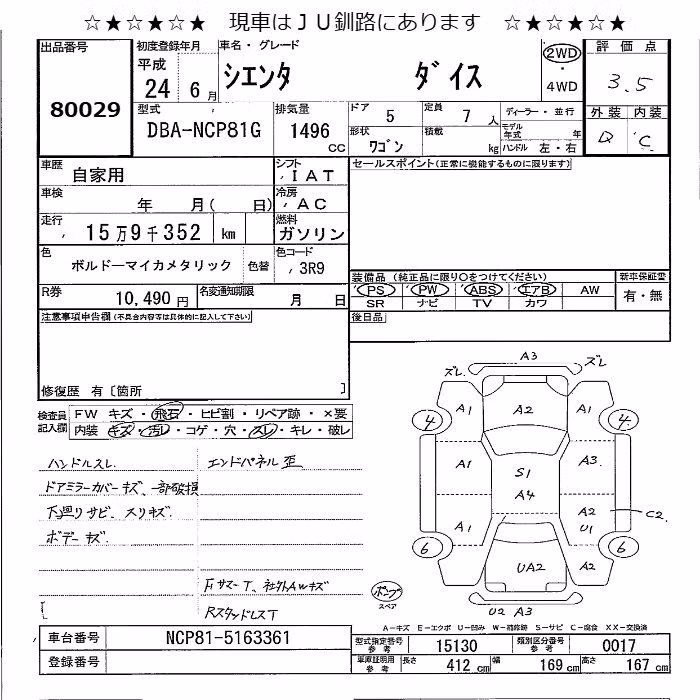 ☆★☆★☆★ 現車はＪＵ釧路にあります ☆★☆★☆★
出品番号
80029
初度登録年月
平成
24 年 6 月
車名・グレード
シエンタ ダイス
2WD
・
4WD
評価点
3.5
型式
DBA-NCP81G
排気量
1496
CC
ドア 5
定員 7 人
ディーラー・並行
形状 ワゴン
積載 kg
モデル年式 年
ハンドル 左・右
外装 内装
D C
車歴
自家用
シフト
IAT
車検
年 月( 日)
冷房
AC
走行
15万9千352 km
燃料
ガソリン
色
ボルドーマイカメタリック
色替
色コード
3R9
R券
10,490円
名変通知期限
月 日
セールスポイント(正常に機能するものに限ります)
装備品 (純正品に限り○をつけてください)
新車保証書
PS PW ABS エアB AW
SR ナビ TV カワ
有・無
後日品
注意事項申告欄(不具合内容等は具体的に記入して下さい)
修復歴 有 [箇所 ]
検査員
記入欄
FW キズ・飛石・ヒビ割・リペア跡・×要
内装 キズ・汚レ・コゲ・穴・スレ・キレ・破レ
ハンドルスレ
エンドパネル歪
ドアミラーカバーキズ、一部破損
下廻りサビ、スリキズ
ボデーキズ
FサマーT、社外AWキズ
RスタッドレスT
ズレ A3 ズレ
A1 A2 A1
4 4
A1 S1 A3
A4
A1 A2 C2
U1
6 6
UA2 A2
U2 A3
ポンプ
スペア
A－キズ E－エクボ U－凹み W－補修跡 S－サビ C－腐食 XX－交換済
車台番号 NCP81-5163361
登録番号
型式指定番号
参考
15130
類別区分番号
参考
0017
車庫証明用
参考
長さ 412 cm
幅 169 cm
高さ 167 cm